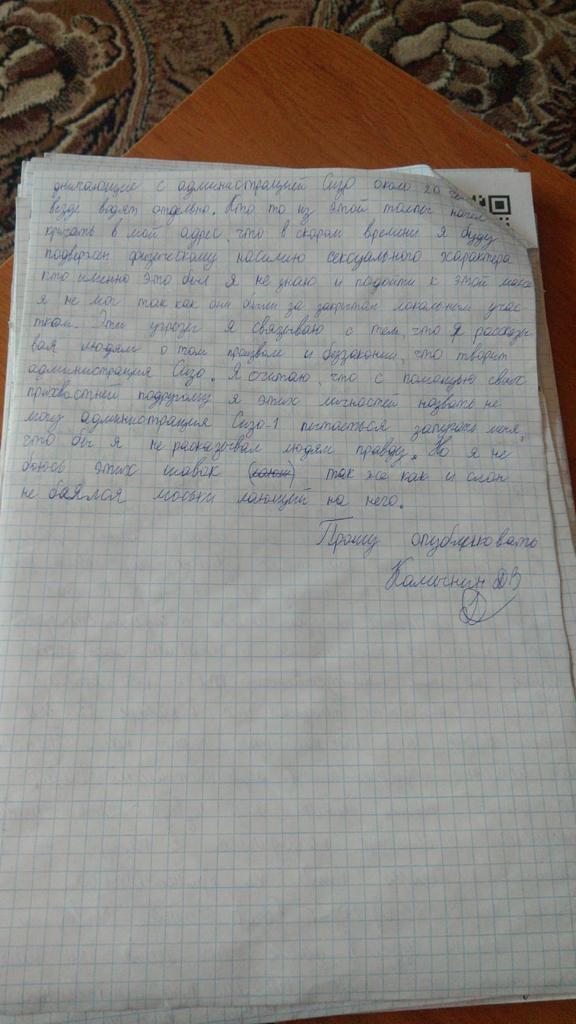 дничающие с администрацией Сизо около 20 че
везде водят отдельно. Кто то из этой толпы начал
кричать в мой адрес, что в скором времени я буду
подвержен физическому насилию сексуального характера
кто именно это был я не знаю и подойти к этой массе
я не мог так как они были за закрытом локальным учас-
тком. Эти угрозы я связываю с тем, что я рассказы
вая людям о том произволе и беззаконии, что творит
администрация Сизо. Я считаю, что с помощью своих
прихвостней подругому я этих личностей назвать не
могу администрация Сизо-1 пытаеться запугать меня,
что бы я не расказывал людям правду. Но я не
боюсь этих шавок так же как и слон
не баялся моськи лающий на него.
Прошу опубликовать
Камынин ДВ